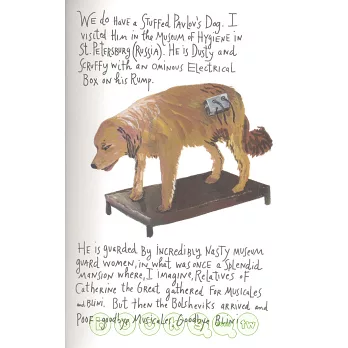 We do have a stuffed Pavlov's Dog. I
visited Him in the Museum of Hygiene in
St. Petersburg (Russia). He is Dusty and
Scruffy with an ominous Electrical
Box on his Rump.
He is guarded by incredibly nasty museum
guard women, in what was once a splendid
mansion where, I imagine, Relatives of
Catherine the Great gathered for Musicales
and Blini. But then the Bolsheviks arrived and
Poof goodbye Musicales, Goodbye Blini.